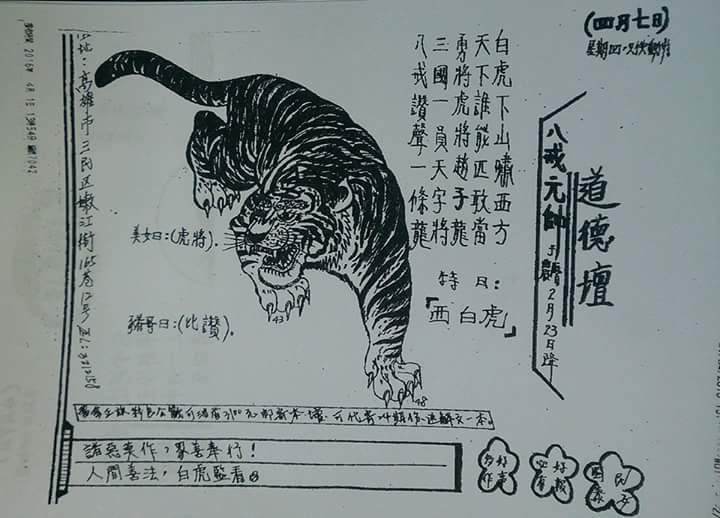 (四月七日)
道德壇
八戒元帥 于農曆2月23日降
白虎下山嘯西方
天下誰能匹敵當
勇將虎將趙子龍
三國一員天字將
八戒讚聲一條龍
特曰:
『西白虎』
美女曰:(虎將).
豬哥曰:(比讚).
43
48
址:高雄市三民区嫩江街165巷12号
諸惡莫作,眾善奉行!
人間善法,白虎監看。
多作好事
必有好報
國泰民安